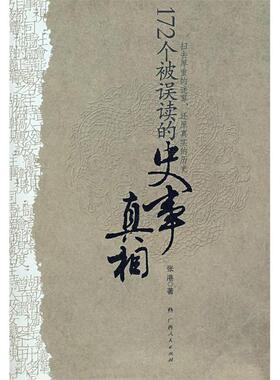 172个被误读的
史事
真相
扫去厚重的迷雾，还原真实的历史
张港 著
广西人民出版社